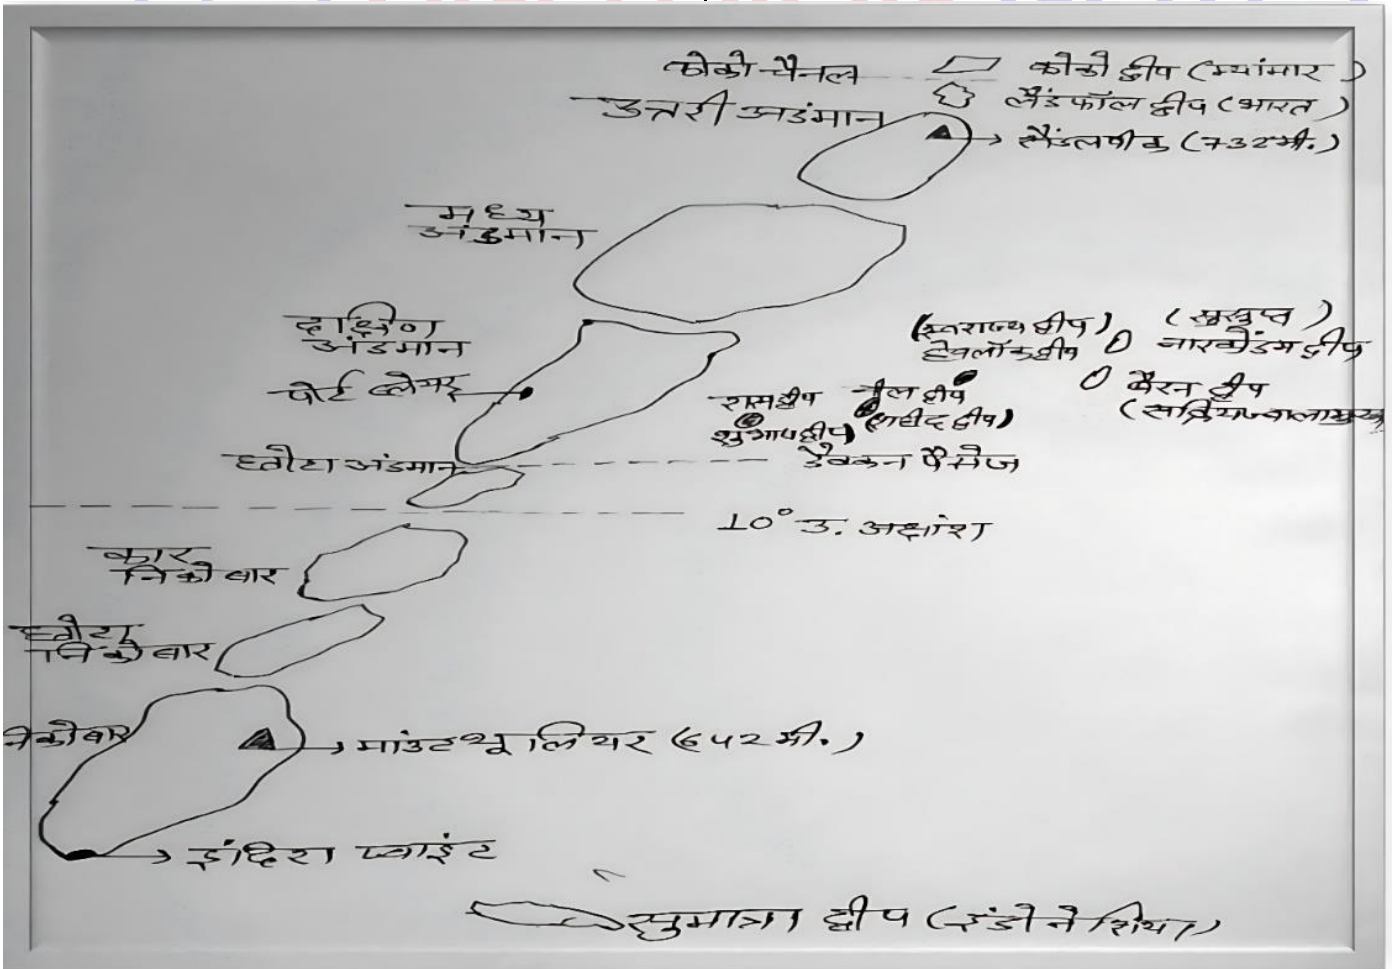 कोको चैनल
कोको द्वीप (म्यांमार)
लैंडफॉल द्वीप (भारत)
उत्तरी अडंमान
सैंडलपीक (732मी.)
मध्य
अंडमान
दक्षिण
अंडमान
पोर्ट ब्लेयर
(स्वराज्य द्वीप)
हेवलॉक द्वीप
(सुसुप्त)
नारकोंडम द्वीप
बैरन द्वीप
(सक्रिय ज्वालामुखी
रासद्वीप
नील द्वीप
(शहीद द्वीप)
छोटा अंडमान
डेक्कन पैसेज
10° उ. अक्षांश
कार
निकोबार
छोटा
निकोबार
निकोबार
मांउट थूलियर (642मी.)
इंदिरा प्वाइंट
सुमात्रा द्वीप (इंडोनेशिया)